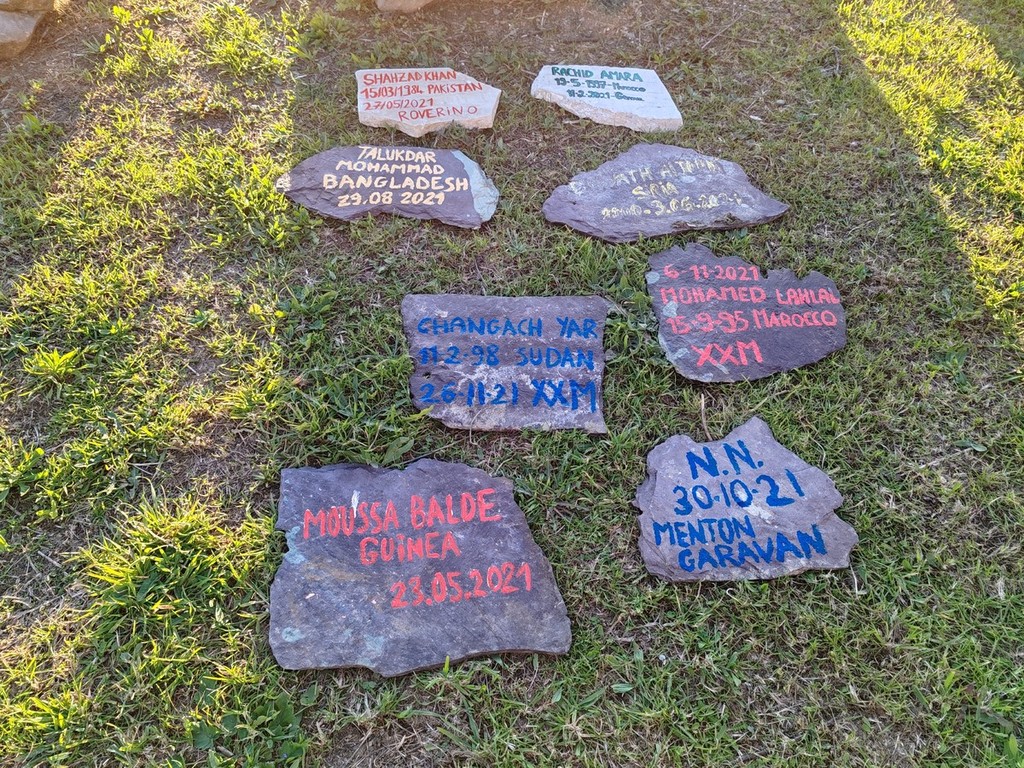 SHAHZAD KHAN
15/03/1984 PAKISTAN
27/05/2021
ROVERINO
RACHID AMARA
19-5-1997-Marocco
11-2-2021-
TALUKDAR
MOHAMMAD
BANGLADESH
29.08 2021
6-11-2021
MOHAMED LAHLAL
15-9-95 MAROCCO
XXM
CHANGACH YAR
11-2-98 SUDAN
26-11-21 XXM
MOUSSA BALDE
GUINEA
23.05.2021
N.N.
30-10-21
MENTON
GARAVAN